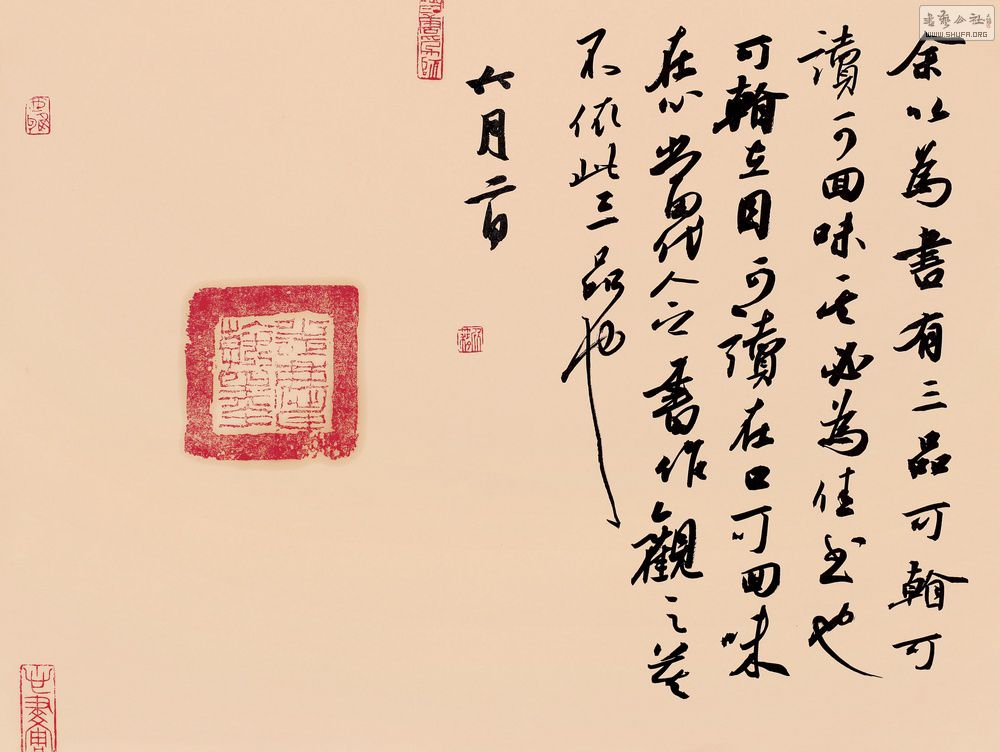 余以為書有三品可翰可
讀可回味其必為佳書也
可翰在目可讀在口可回味
在心當代人之書作觀之莫
不依此三品也
六月二日
書藝公社
WWW.SHUFA.ORG